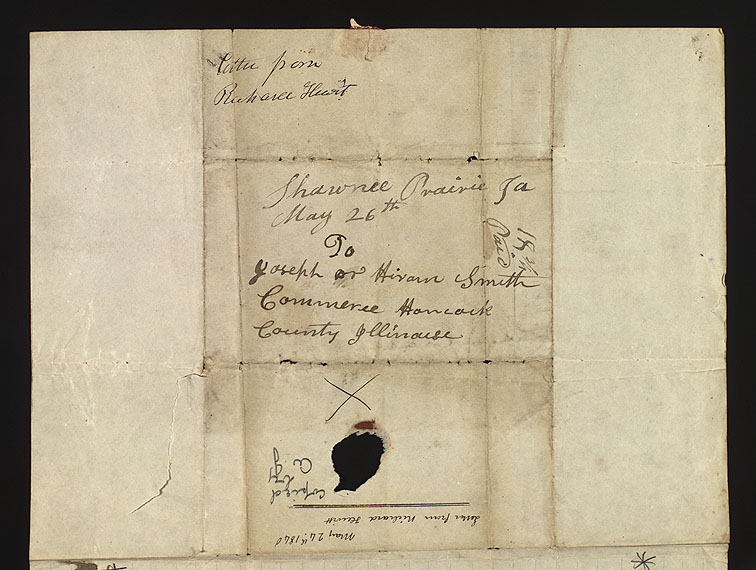 Letter from
Richard Hewit
Shawnee Prairie Ia
May 26th
To
Joseph or Hiram Smith
Commerce Hancock
County Illinoise
Paid
18 3/4
copied
by
letter from Richard Hewitt
May 24th 1840